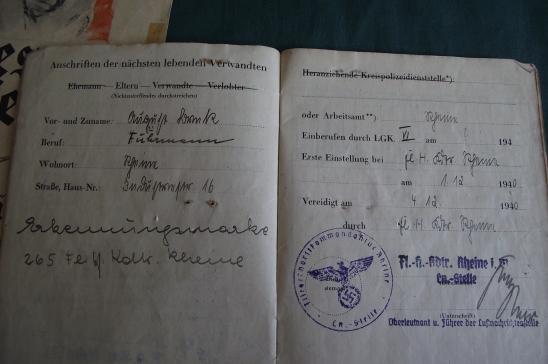 Anschriften der nächsten lebenden Verwandten
Ehemann — Eltern — Verwandte — Verlobter
(Nichtzutreffendes durchstreichen)
Vor- und Zuname:
Beruf: Fuhrmann
Wohnort: Rheine
Straße, Haus-Nr.: 16
Erkennungsmarke
265 Kdtr. Rheine
Heranziehende Kreispolizeidienststelle*)
oder Arbeitsamt**) Rheine
Einberufen durch LGK. VI am 194
Erste Einstellung bei Fl. H. Kdtr. Rheine
am 1.12 1940
Vereidigt am 4.12 1940
durch Fl. H. Kdtr. Rheine
Fliegerhorstkommandantur Rheine
Ln.-Stelle
Fl.-H.-Kdtr. Rheine i. W.
Ln.-Stelle
(Unterschrift)
Oberleutnant u. Führer der Luftnachrichtenstelle